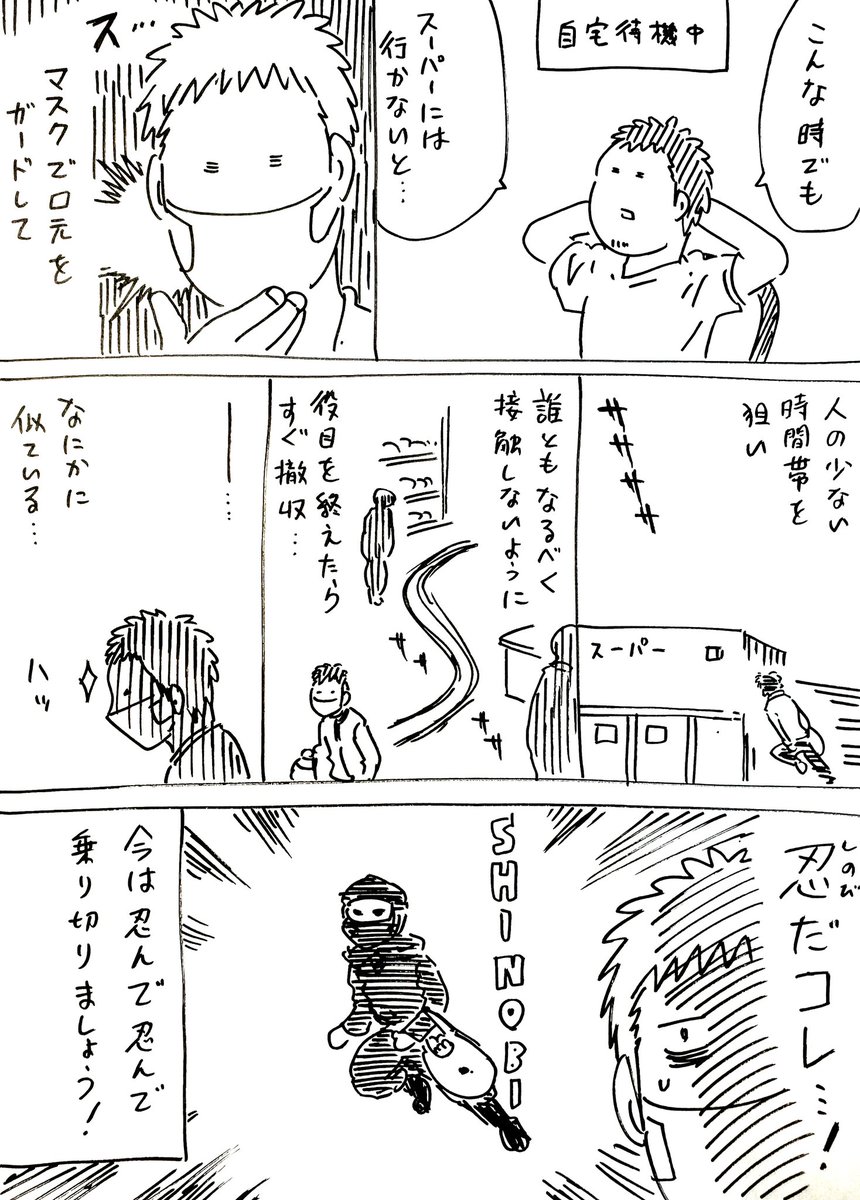 自宅待機中
こんな時でも
スーパーには
行かないと…
ス…
マスクで口元を
ガードして
人の少ない
時間帯を
狙い
サササササ
スーパー
誰ともなるべく
接触しないように
ササ
ササ
役目を終えたら
すぐ撤収…
―…
なにかに
似ている…
ハッ
しのび
忍だコレ…!
SHINOBI
今は忍んで忍んで
乗り切りましょう!